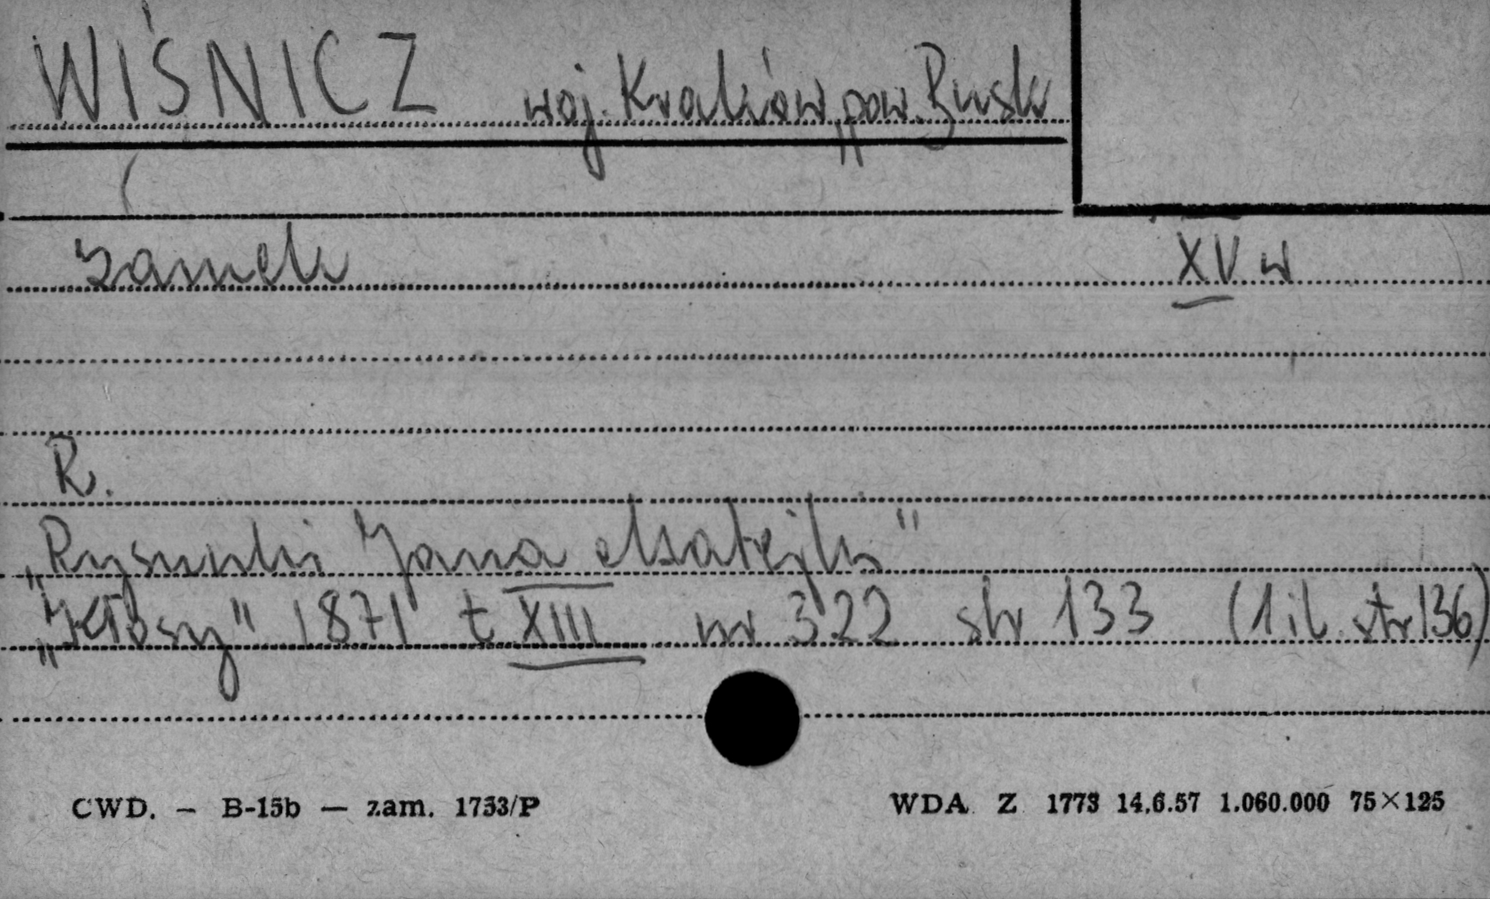 WIŚNICZ woj. Kraków, pow. Busk
zamek XV w
R.
„Rysunki Jana Matejki"
„Kłosy" 1871 t XIII nr 322 str 133 (1 il. str 136)
CWD. — B-15b — zam. 1753/P WDA Z 1773 14.6.57 1.060.000 75×125